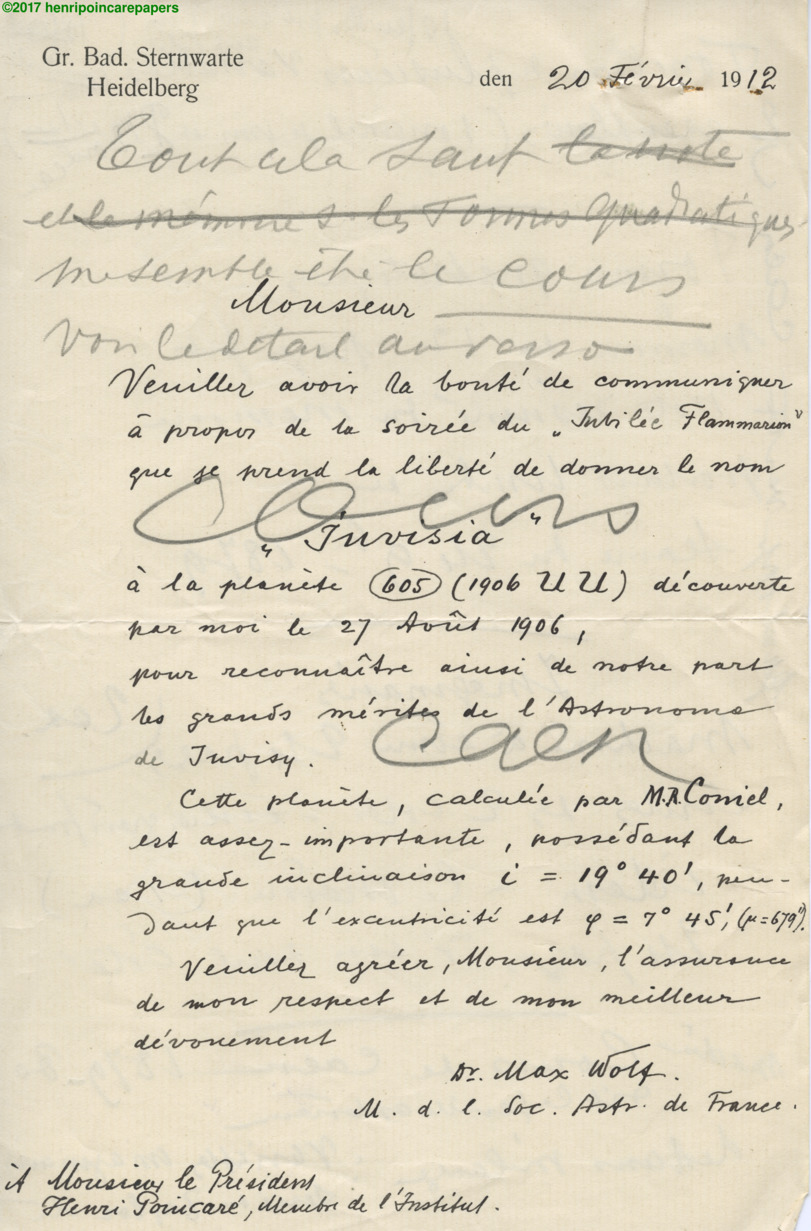 ©2017 henripoincarepapers
Gr. Bad. Sternwarte
Heidelberg
den 20 Février 1912
Tout cela sauf la note
et le mémoire s. les Formes quadratiques
me semble être le cours
Monsieur
Voir le détail au verso
Veuillez avoir la bonté de communiquer
à propos de la soirée du „Jubilée Flammarion"
que je prend la liberté de donner le nom
Cours
„Juvisia"
à la planète (605) (1906 UU) découverte
par moi le 27 Août 1906,
pour reconnaître ainsi de notre part
les grands mérites de l'Astronome
de Juvisy.
Caen
Cette planète, calculée par M.R. Coniel,
est assez-importante, possédant la
grande inclinaison i = 19° 40', pen-
dant que l'excentricité est φ = 7° 45', (μ=679").
Veuillez agréer, Monsieur, l'assurance
de mon respect et de mon meilleur
dévouement
Dr. Max Wolf.
M. d. l. Soc. Astr. de France.
A Monsieur le Président
Henri Poincaré, Membre de l'Institut.